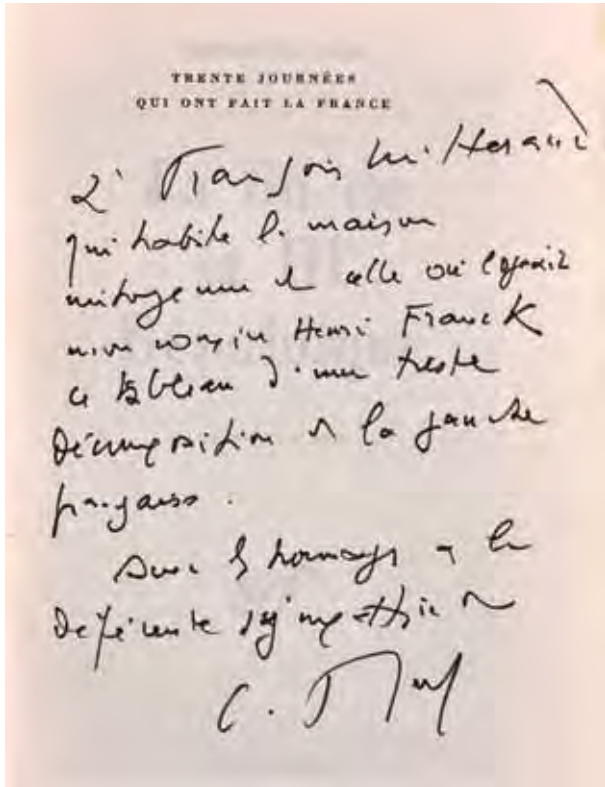 TRENTE JOURNÉES
QUI ONT FAIT LA FRANCE
à François Mitterand
qui habite la maison
mitoyenne de celle où logeait
mon cousin Henri Franck
ce tableau d'une triste
décomposition de la gauche
française.
Avec les hommages et la
déférente sympathie de
C.